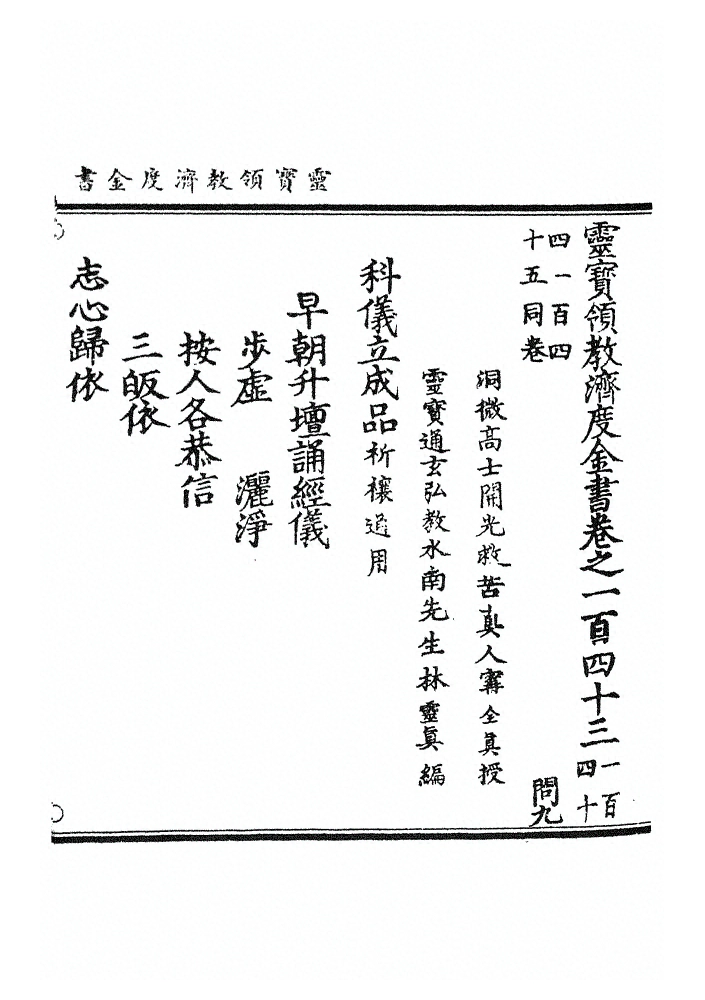 靈寶領教濟度金書
靈寶領教濟度金書卷之一百四十三一百四十
四一百四十五同卷
問九
洞微高士開光救苦真人寗全真授
靈寶通玄弘教水南先生林靈真編
科儀立成品祈禳通用
早朝升壇誦經儀
步虛 灑淨
按人各恭信
三皈依
志心歸依